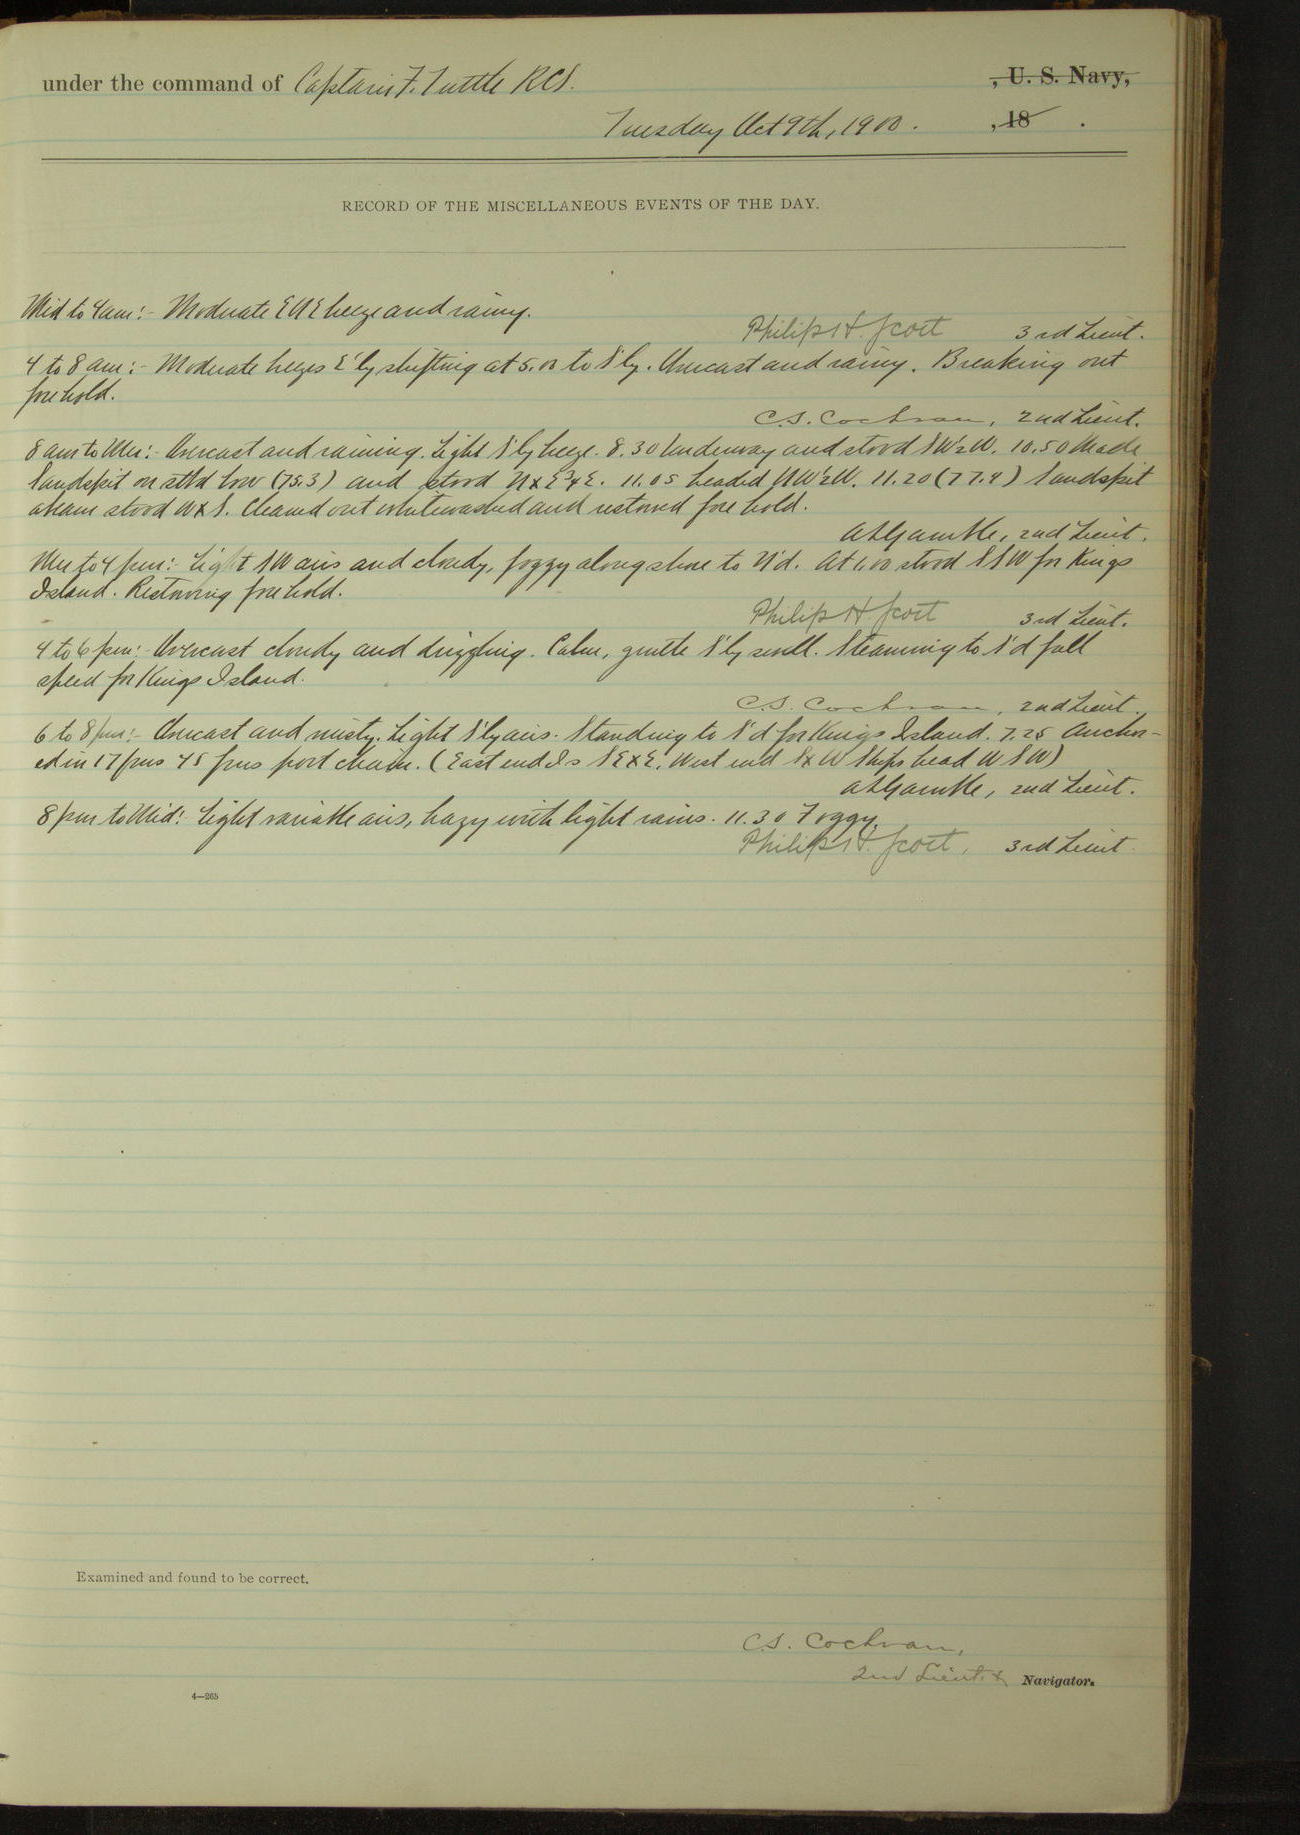 under the command of Captain F. Tuttle RCS. , U. S. Navy,
Tuesday Oct 9th, 1900. , 18 .
RECORD OF THE MISCELLANEOUS EVENTS OF THE DAY.
Mid to 4 am:- Moderate ENE breeze and rainy.
Philip H. Scott 3rd Lieut.
4 to 8 am:- Moderate breezes E'ly shifting at 5.00 to S'ly. Overcast and rainy. Breaking out
fore hold.
C.S. Cochran, 2nd Lieut.
8 am to Mer:- Overcast and raining. Light S'ly breeze. 8.30 Underway and stood SW½W. 10.50 Made
Sandspit on stb'd bow (75.3) and stood NxE¾E. 11.05 headed NW½W. 11.20 (77.9) Sandspit
abeam stood WxS. Cleaned out whitewashed and restowed fore hold.
A H Gamble, 2nd Lieut.
Mer to 4 pm:- Light SW airs and cloudy, foggy along shore to N'd. At 1.00 stood SSW for Kings
Island. Restowing fore hold.
Philip H. Scott 3rd Lieut.
4 to 6 pm:- Overcast cloudy and drizzling. Calm, gentle S'ly swell. Steaming to S'd full
speed for Kings Island.
C.S. Cochran, 2nd Lieut.
6 to 8 pm:- Overcast and misty. Light S'ly airs. Standing to S'd for Kings Island. 7.25 Anchor-
ed in 17 fms 45 fms port chain. (East end Is SExE, West end SxW Ships head WSW)
A H Gamble, 2nd Lieut.
8 pm to Mid: Light variable airs, hazy with light rains. 11.30 Foggy.
Philip H. Scott, 3rd Lieut.
Examined and found to be correct.
C.S. Cochran,
2nd Lieut. & Navigator.
4—265